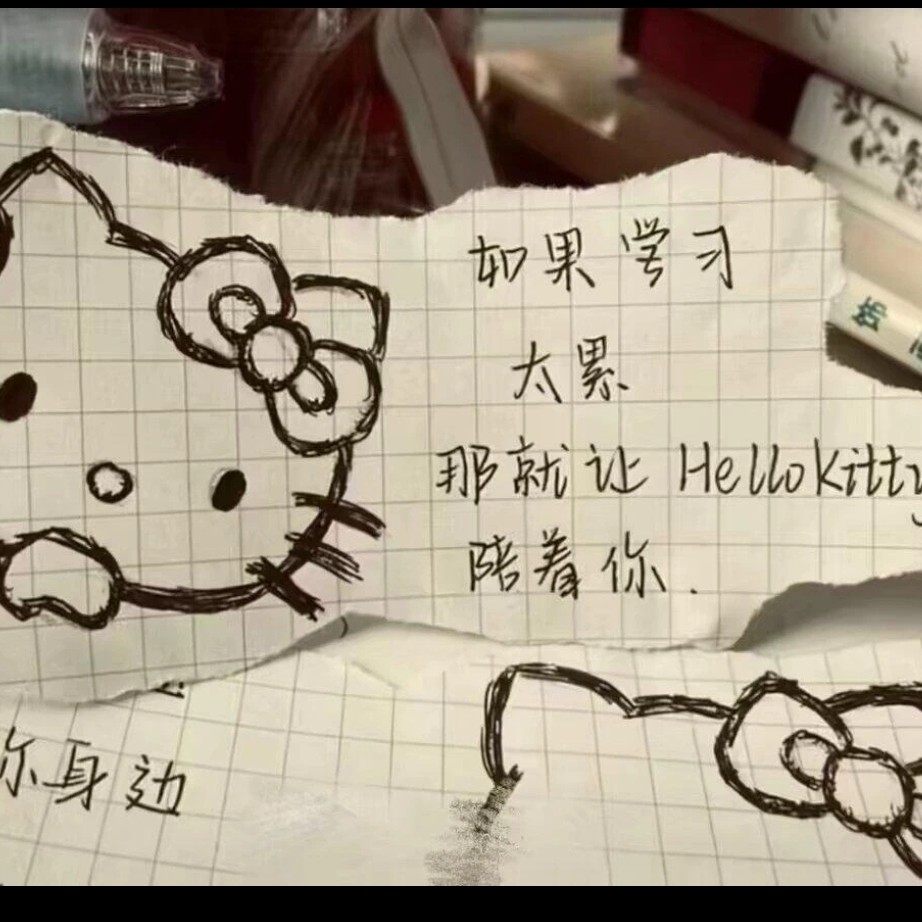 如果学习
太累
那就让 Hellokitty
陪着你.
你身边